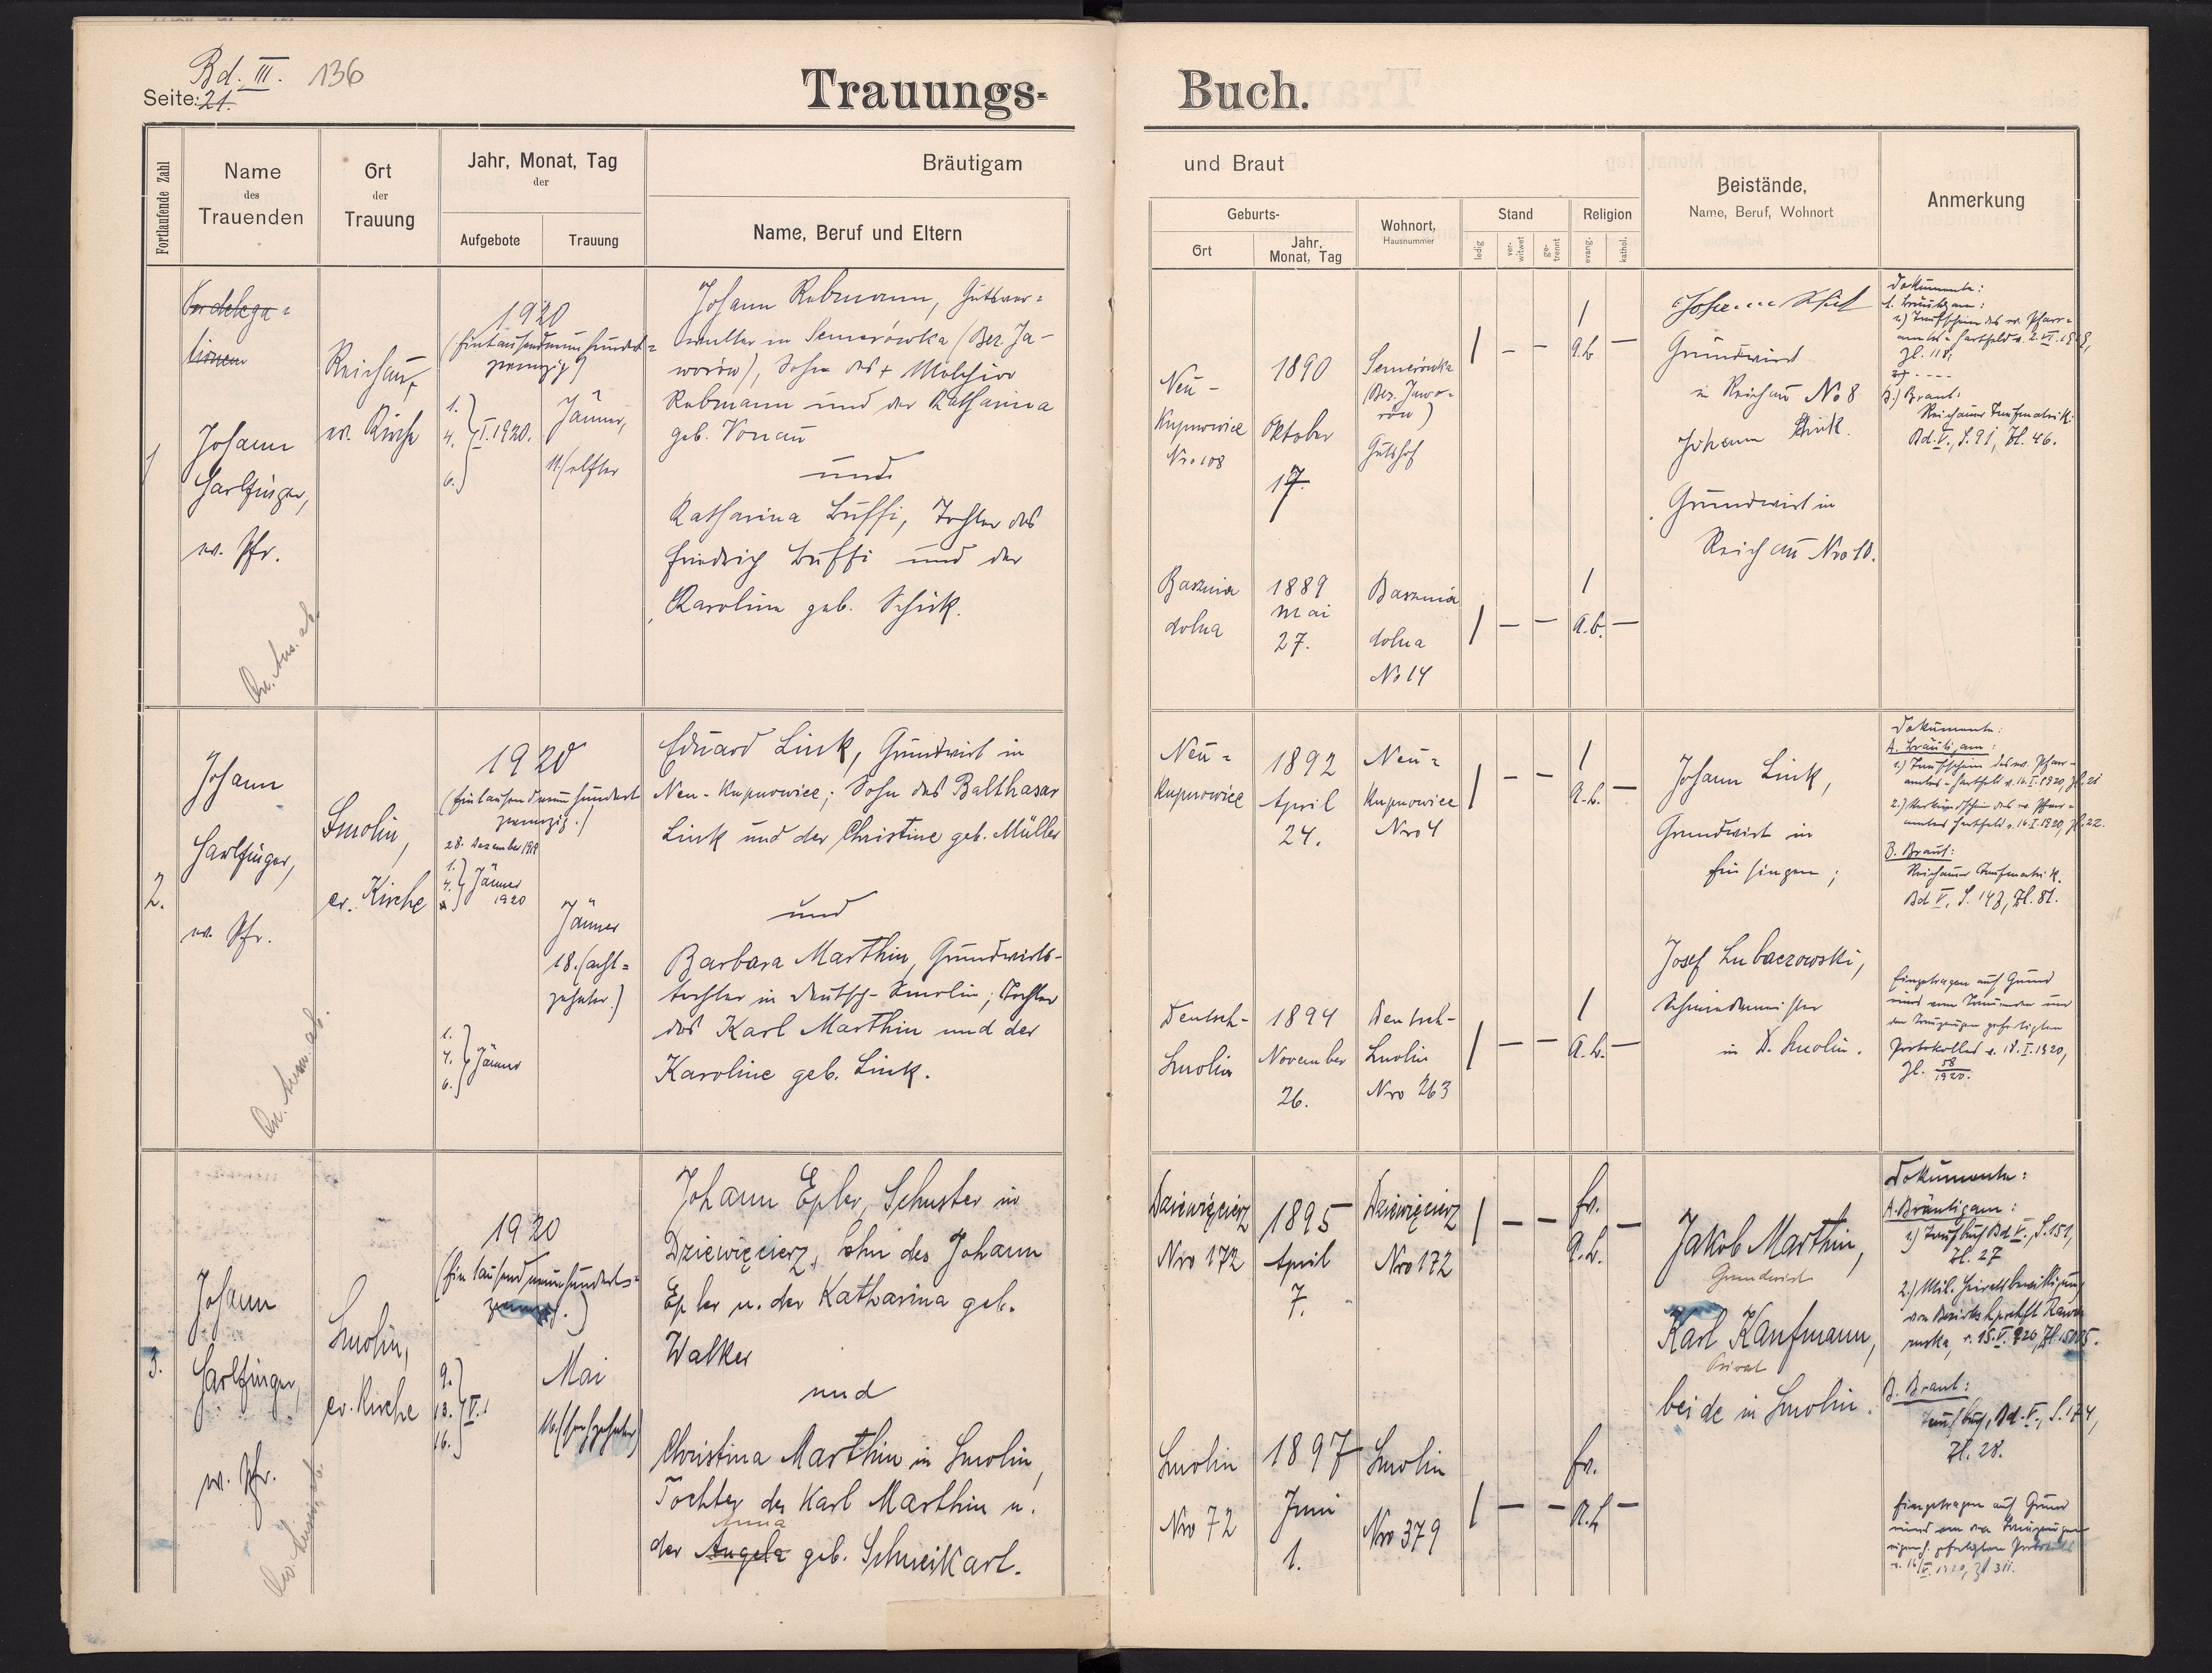 Bd. III. 136
Seite: 21.
Trauungs-
Buch.
Fortlaufende Zahl
Name
des
Trauenden
Ort
der
Trauung
Jahr, Monat, Tag
der
Aufgebote
Trauung
Bräutigam
Name, Beruf und Eltern
und Braut
Geburts-
Ort
Jahr,
Monat, Tag
Wohnort,
Hausnummer
Stand
ledig
ver-
witwet
ge-
trennt
Religion
evang.
kathol.
Beistände,
Name, Beruf, Wohnort
Anmerkung
1
Johann
Harlfinger,
ev. Pfr.
Reichau,
ev. Kirche
1920
(Eintausendneunhundert=
zwanzig)
1.
4. I. 1920.
6.
Jänner,
11. (elfter
Johann Rebmann, Gutsver=
walter in Semerówka (Bez. Ja-
worów), Sohn des + Melchior
Rebmann und der Katharina
geb. Vonau
und
Katharina Buffi, Tochter des
Friedrich Buffi und der
Karolina geb. Schick.
Neu-
Kupnowice
Nro 108
1890
Oktober
17.
Semerówka
(Bez. Jawo-
rów)
Gutshof
1 - - a.b. -
Basznia
dolna
1889
Mai
27.
Basznia
dolna
No 14
1 - - a.b. -
Grundwirt
in Reichau No 8
Johann Schick.
Grundwirt in
Reichau Nro 10.
Dokumente:
A. Bräutigam:
1.) Taufschein des ev. Pfarr=
Zl. 118.
B.) Braut:
Reichauer Taufmatrik.
Bd. V., S. 91, Zl. 46.
2.
Johann
Harlfinger,
ev. Pfr.
Smolin,
ev. Kirche
1920
(Eintausendneunhundert
zwanzig.)
28. Dezember 1919
1.
4. Jänner
1920
1.
4. Jänner
6.
Jänner
18. (acht=
zehnter.)
Eduard Link, Grundwirt in
Neu-Kupnowice; Sohn des Balthasar
Link und der Christine geb. Müller
und
Barbara Marthin, Grundwirts-
tochter in Deutsch-Smolin; Tochter
des Karl Marthin und der
Karoline geb. Link.
Neu=
Kupnowice
1892
April
24.
Neu=
Kupnowice
Nro 4
1 - - a.b. -
Deutsch-
Smolin
1894
November
26.
Deutsch-
Smolin
Nro 263
1 - - a.b. -
Johann Link,
Grundwirt in
Einsingen;
Josef Lubaczowski,
Schmiedemeister
in D. Smolin.
Dokumente:
A. Bräutigam:
1.) Taufschein des ev. Pfarr-
amtes Hartfeld v. 16. I. 1920, Zl. 21
2.) Verkündschein des ev. Pfarr=
amtes Hartfeld v. 16. I. 1920, Zl. 22.
B. Braut:
Reichauer Taufmatrik.
Bd V, S. 143, Zl. 81.
Eingetragen auf Grund
den Trauzeugen gefertigten
Protokolles v. 18. I. 1920,
Zl. 58/1920.
3.
Johann
Harlfinger,
ev. Pfr.
Smolin,
ev. Kirche
1920
(Eintausendneunhundert-
9.
13. V.
16.
Mai
16. (sechzehnter)
Johann Epler, Schuster in
Dziewięcierz, Sohn des Johann
Epler u. der Katharina geb.
Walker
und
Christina Marthin in Smolin,
Tochter des Karl Marthin u.
Anna
der Angela geb. Schweikart.
Dziewięcierz
Nro 172
1895
April
7.
Dziewięcierz
Nro 172
1 - - ev. a.b. -
Smolin
Nro 72
1897
Juni
1.
Smolin
Nro 379
1 - - ev. a.b. -
Jakob Marthin,
Grundwirt
Karl Kaufmann,
Privat
beide in Smolin.
Dokumente:
A. Bräutigam:
1.) Taufbuch Bd. V., S. 151,
Zl. 27
2.) Mil. Heiratsbewilligung
B. Braut:
Taufbuch, Bd. V., S. 174,
Zl. 28.
Eingetragen auf Grund